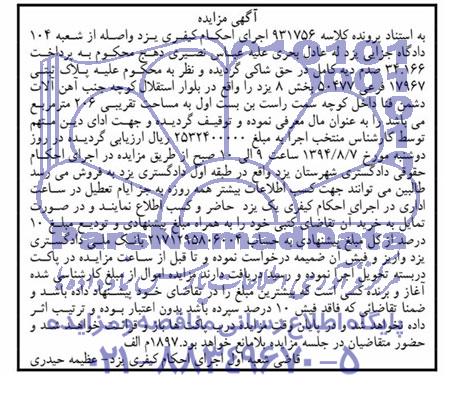 آگهی مزایده
به استناد پرونده کلاسه ۹۳۱۷۵۶ اجرای احکام کیفری یزد واصله از شعبه ۱۰۴
دادگاه جزایی یزد له عادل بحری علیه عباس نصیری دهج محکوم به پرداخت
صدم دیه کامل در حق شاکی گردیده و نظر به محکوم علیه پلاک ثبتی
۱۷۹۶۷ فرعی ۵۰۴۷۷ بخش ۸ یزد را واقع در بلوار استقلال کوچه جنب آهن آلات
دشمن فنا داخل کوچه سمت راست بن بست اول به مساحت تقریبی ۲۰۶ مترمربع
می باشد را به عنوان مال معرفی نموده و توقیف گردیده و جهت ادای دین متهم
توسط کارشناس منتخب اجرا به مبلغ ۲۵۳۲۴۰۰۰۰۰ ریال ارزیابی گردیده در روز
دوشنبه مورخ ۱۳۹۴/۸/۷ ساعت ۹ الی ۱۰ صبح از طریق مزایده در اجرای احکام
حقوقی دادگستری شهرستان یزد واقع در طبقه اول دادگستری یزد به فروش می رسد
طالبین می توانند جهت کسب اطلاعات بیشتر همه روزه به جز ایام تعطیل در ساعت
اداری در اجرای احکام کیفری یک یزد حاضر و کسب اطلاع نمایند و در صورت
تمایل به خرید آن تقاضای کتبی خود را به همراه مبلغ پیشنهادی و تودیع مبلغ ۱۰
درصد از کل مبلغ پیشنهادی به حساب ۲۱۷۱۲۹۵۸۰۶۰۰۴ بانک ملی دادگستری
یزد واریز و فیش آن ضمیمه درخواست نموده و تا قبل از ساعت مزایده در پاکت
دربسته تحویل اجرا نموده و رسید دریافت دارند مزایده اموال از مبلغ کارشناسی شده
آغاز و برنده کسی است که بیشترین مبلغ را در تقاضای خود پیشنهاد داده باشد و
ضمنا تقاضائی که فاقد فیش ۱۰ درصد سپرده باشد بدون اعتبار بوده و ترتیب اثر
داده نخواهد شد و در پایان وقت مزایده قرائت خواهد شد و
حضور متقاضیان در جلسه مزایده بلامانع خواهد بود.۱۸۹۷م الف
قاضی شعبه اول اجرای احکام کیفری یزد - عظیمه حیدری
پایگاه اطلاع رسانی مناقصه و مزایده
۰۲۱-۸۸۳۴۹۶۷۰-۵